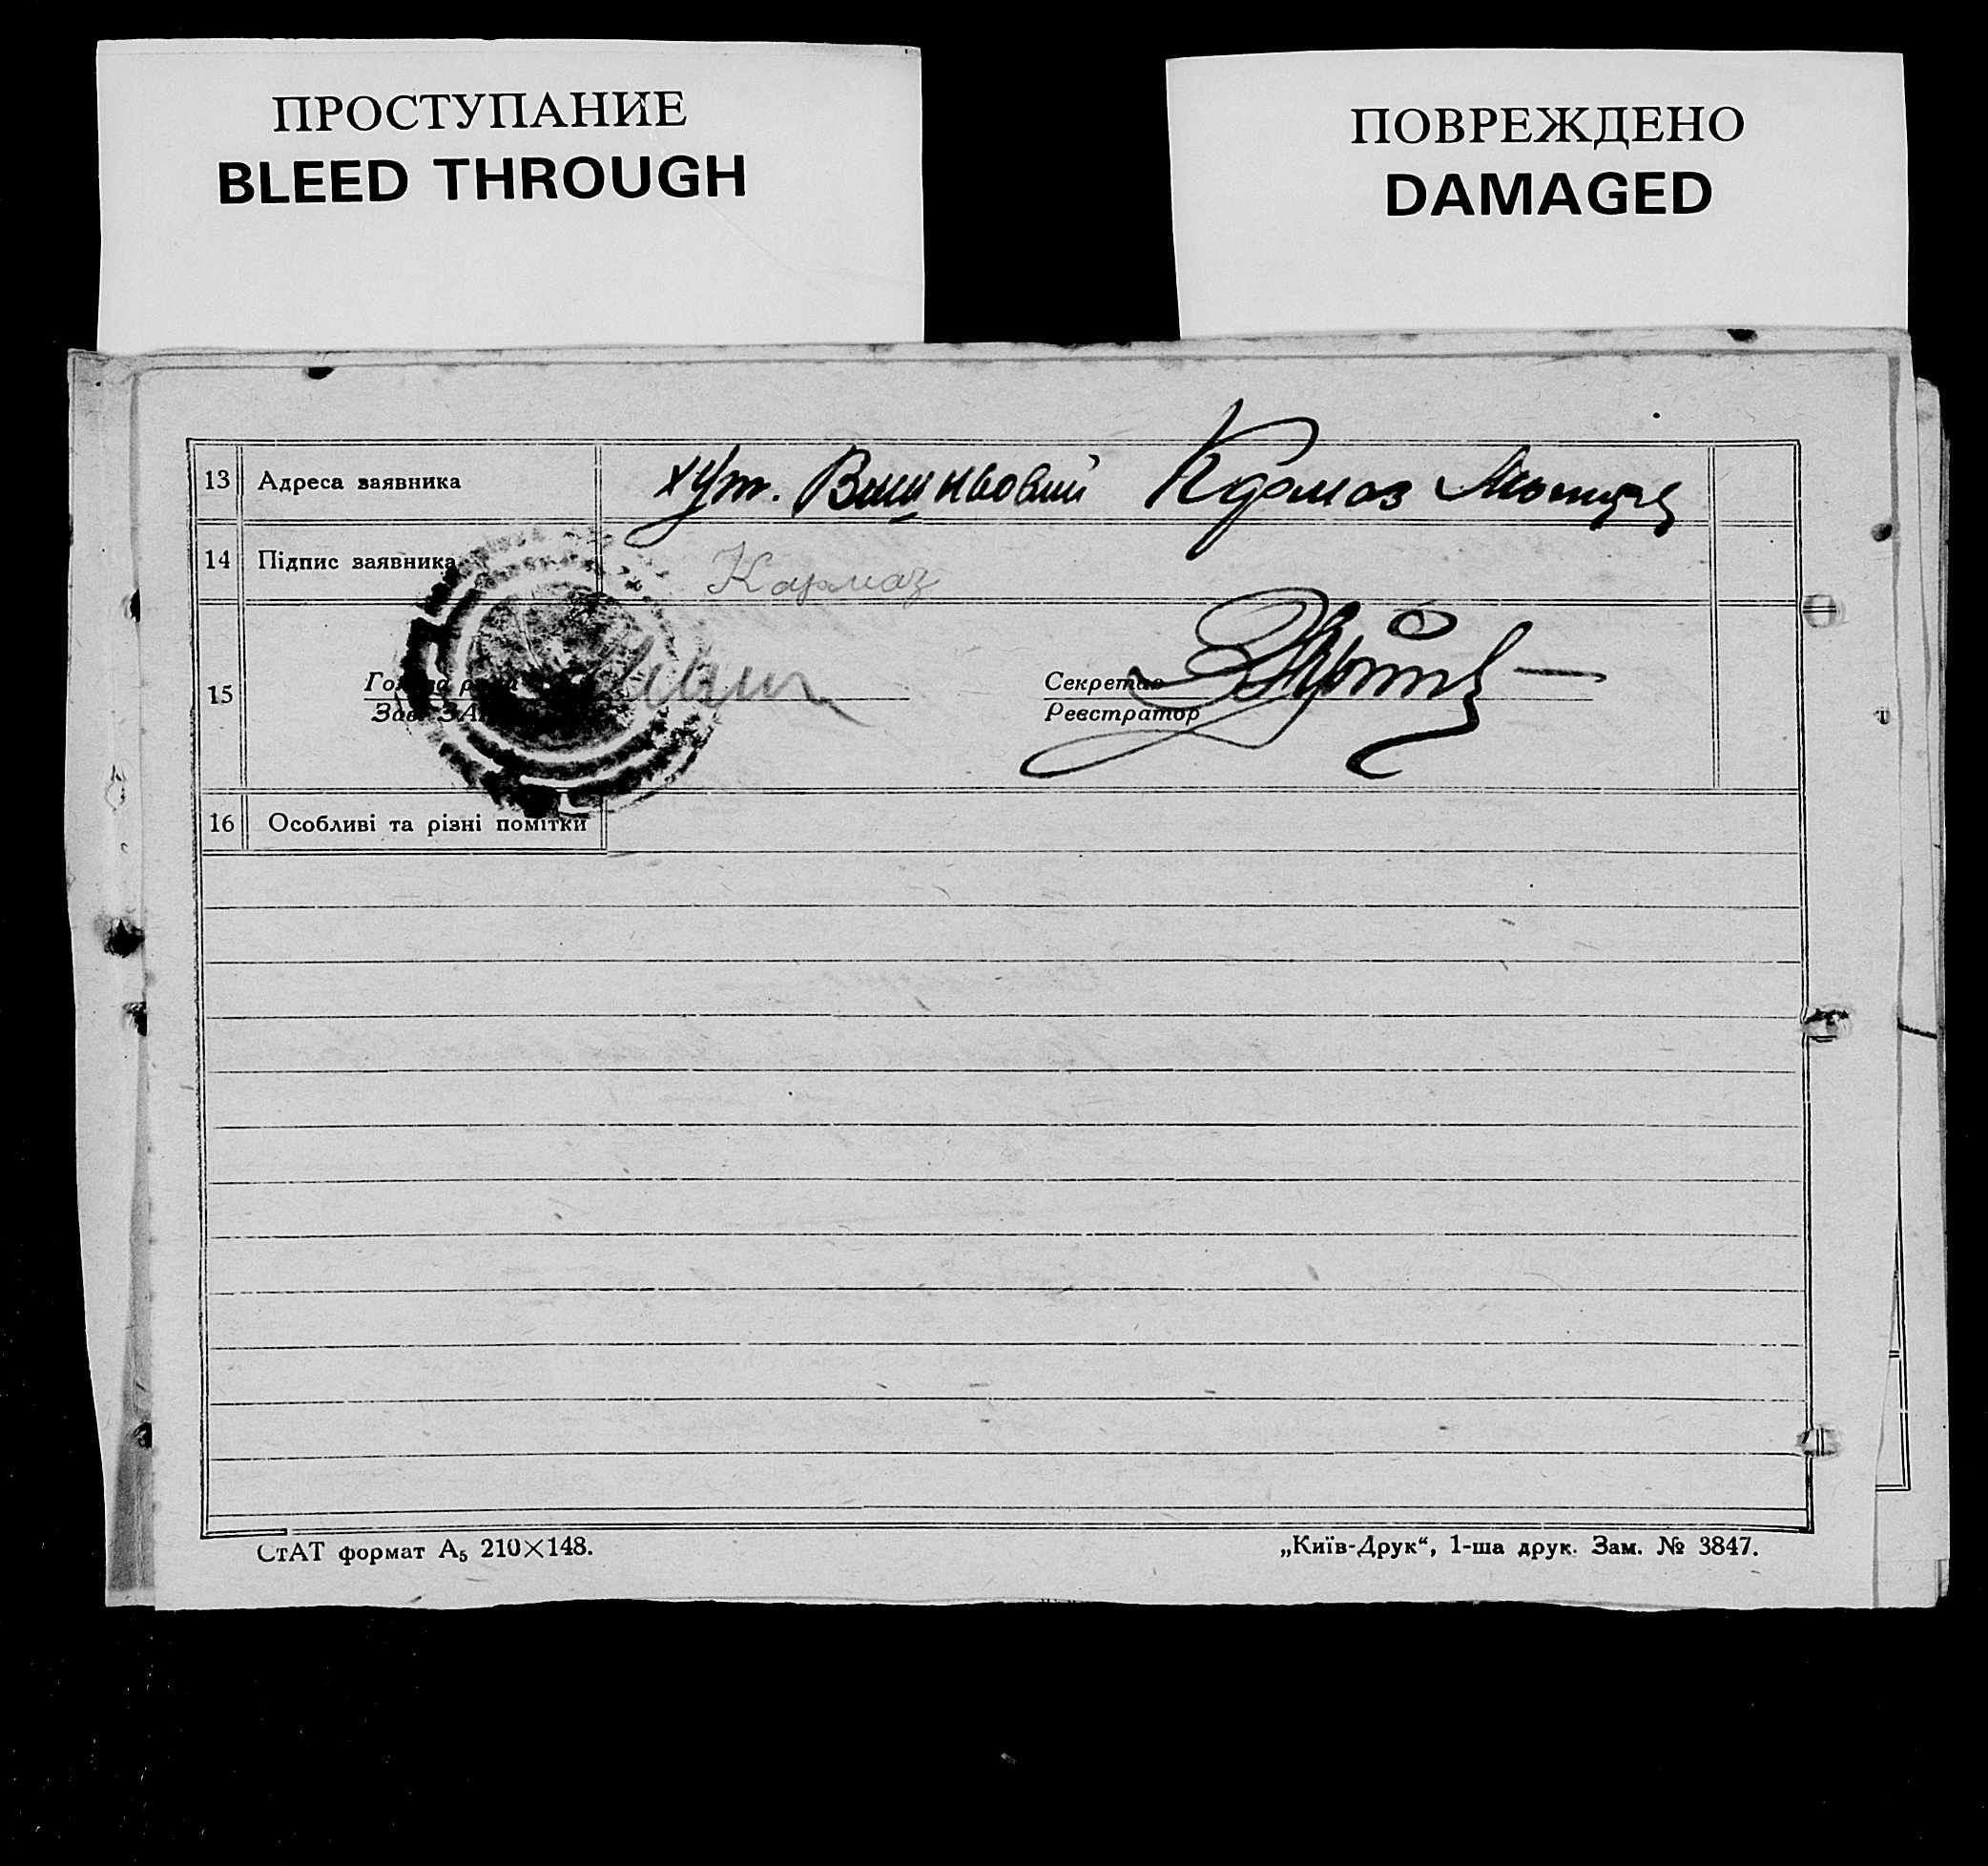 ПРОСТУПАНИЕ
BLEED THROUGH
ПОВРЕЖДЕНО
DAMAGED
13 Адреса заявника хут. Кармаз
14 Підпис заявника Кармаз
Секретар
15
Реєстратор
16 Особливі та різні помітки
СтАТ формат А₅ 210×148.
„Київ-Друк“, 1-ша друк. Зам. № 3847.